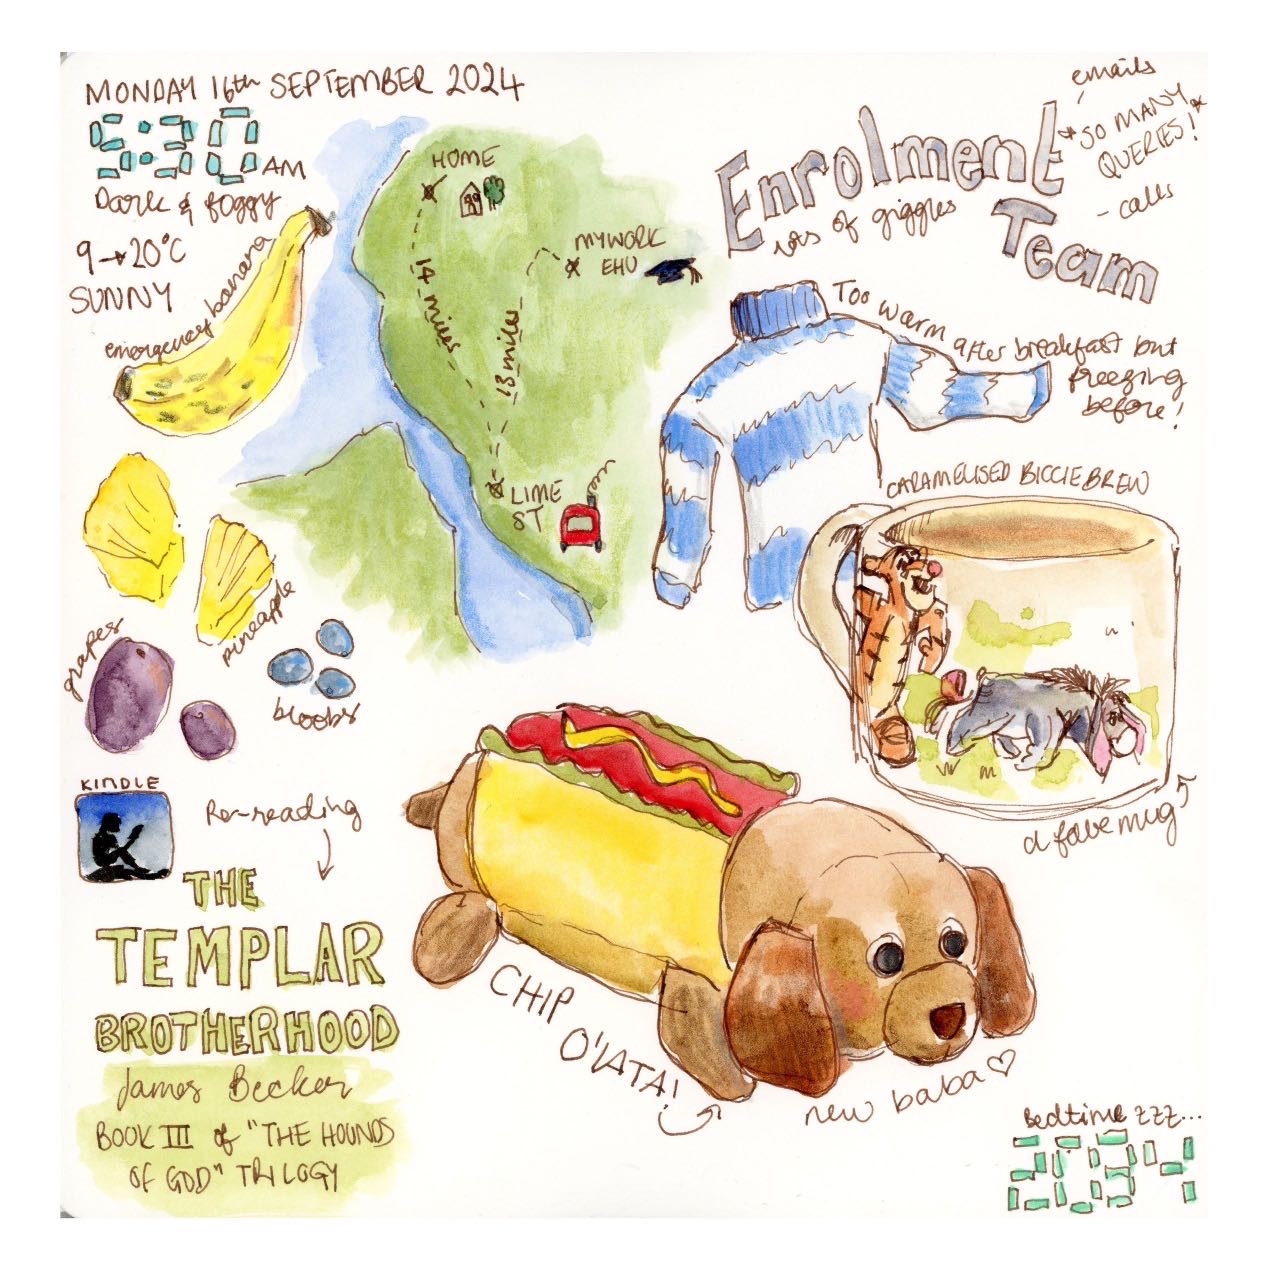 MONDAY 16th SEPTEMBER 2024
5:30 AM
Dark & foggy
9→20°C
SUNNY
emergency banana
HOME
14 miles
MY WORK
EHU
13 miles
LIME
ST
Enrolment
Team
lots of giggles
emails
*SO MANY
QUERIES!*
- calls
Too warm after breakfast but
freezing
before!
CARAMELISED BICCIE BREW
a fave mug
pineapple
grapes
bloobs
KINDLE
Re-reading
THE
TEMPLAR
BROTHERHOOD
James Becker
BOOK III of "THE HOUNDS
OF GOD" TRILOGY
CHIP
O'LATA!
new baba ♡
Bedtime zzz...
20:34